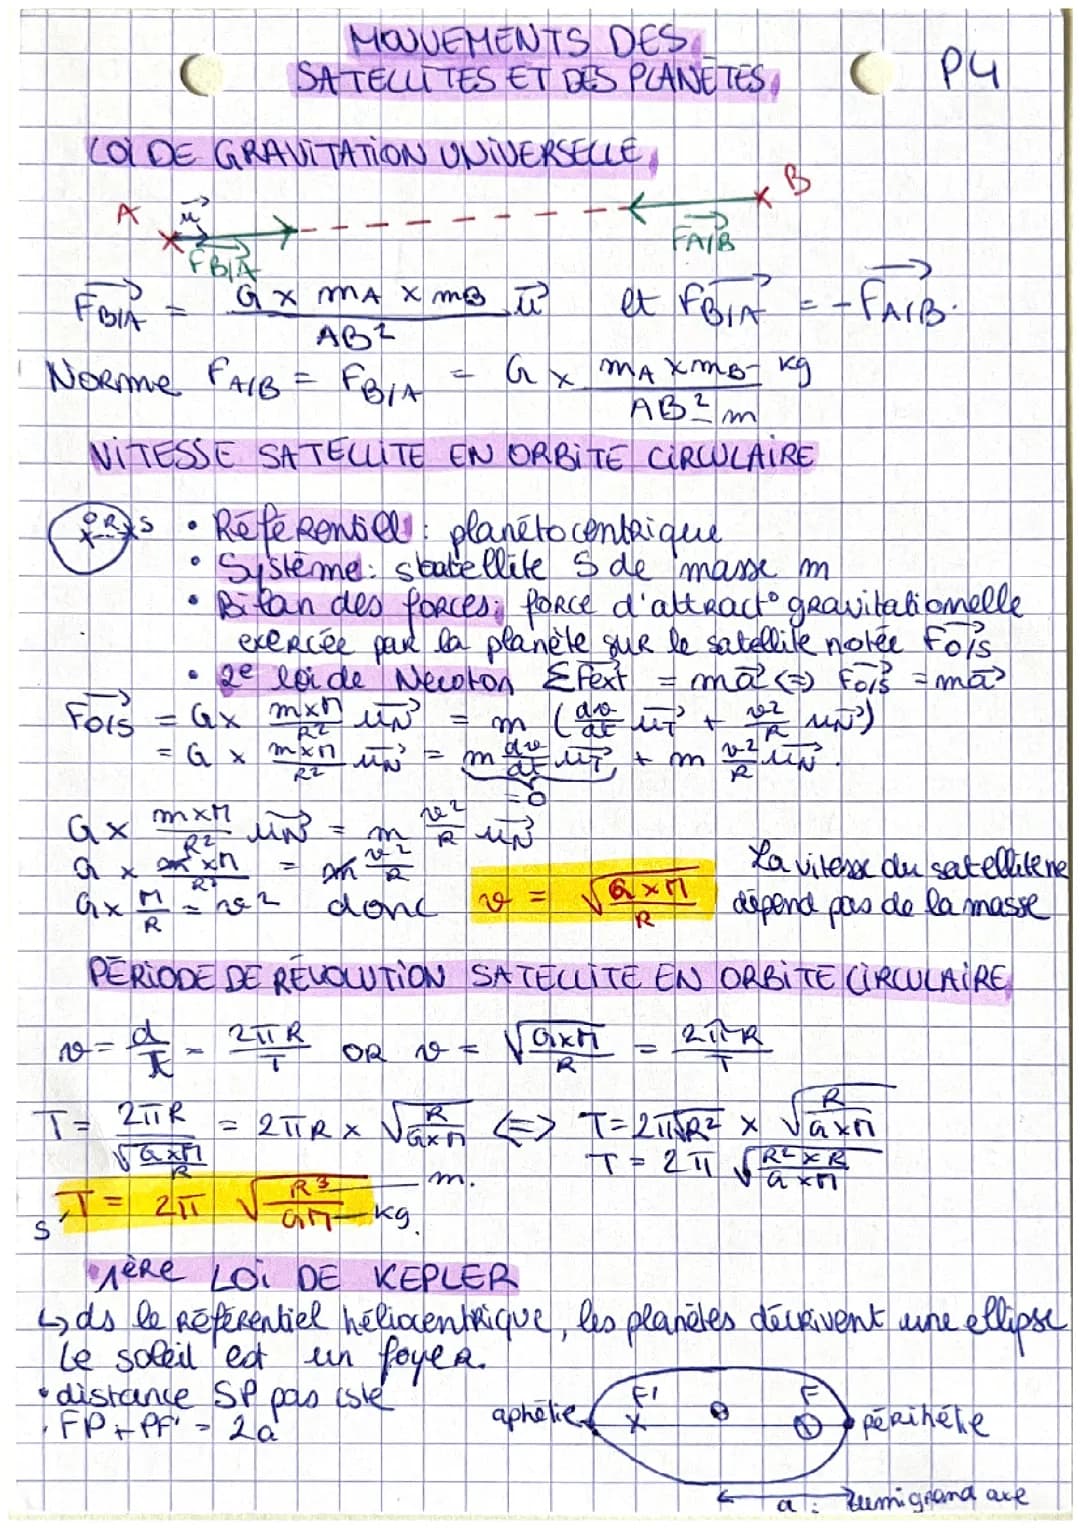 MOUVEMENTS DES
SATELLITES ET DES PLANÈTES
P4
LOI DE GRAVITATION UNIVERSELLE
A u→ FB/A→ FA/B→ B
FB/A→ = G x mA x mB / AB² u→ et FB/A→ = -FA/B→.
Norme FA/B = FB/A = G x mA x mB / AB² kg m
VITESSE SATELLITE EN ORBITE CIRCULAIRE
O R S
• Référentiel : planétocentrique
• Système : satellite S de masse m
• Bilan des forces : force d'attract° gravitationelle
exercée par la planète sur le satellite notée FO/S→
• 2e loi de Newton ΣFext→ = ma→ <=> FO/S→ = ma→
FO/S→ = G x mxM/R² uN→ = m (dv/dt uT→ + v²/R uN→)
= G x mxM/R² uN→ = m dv/dt uT→ + m v²/R uN→.
= 0
G x mxM/R² uN→ = m v²/R uN→
G x mxM/R² = m v²/R
G x M/R = v² donc v = √(GxM/R)
La vitesse du satellite ne
dépend pas de la masse
PÉRIODE DE RÉVOLUTION SATELLITE EN ORBITE CIRCULAIRE
v = d/t = 2πR/T OR v = √(GxM/R) = 2πR/T
T = 2πR/√(GxM/R) = 2πR x √(R/GxM) <=> T = 2π√R² x √(R/GxM)
T = 2π √(R²xR/GxM)
s T = 2π √(R³/GM) m. kg.
1ÈRE LOI DE KEPLER
↳ ds le référentiel héliocentrique, les planètes décrivent une ellipse
Le soleil est un foyer.
• distance SP pas cste
• FP + PF' = 2a
aphélie F' F périhélie
a : demi grand axe